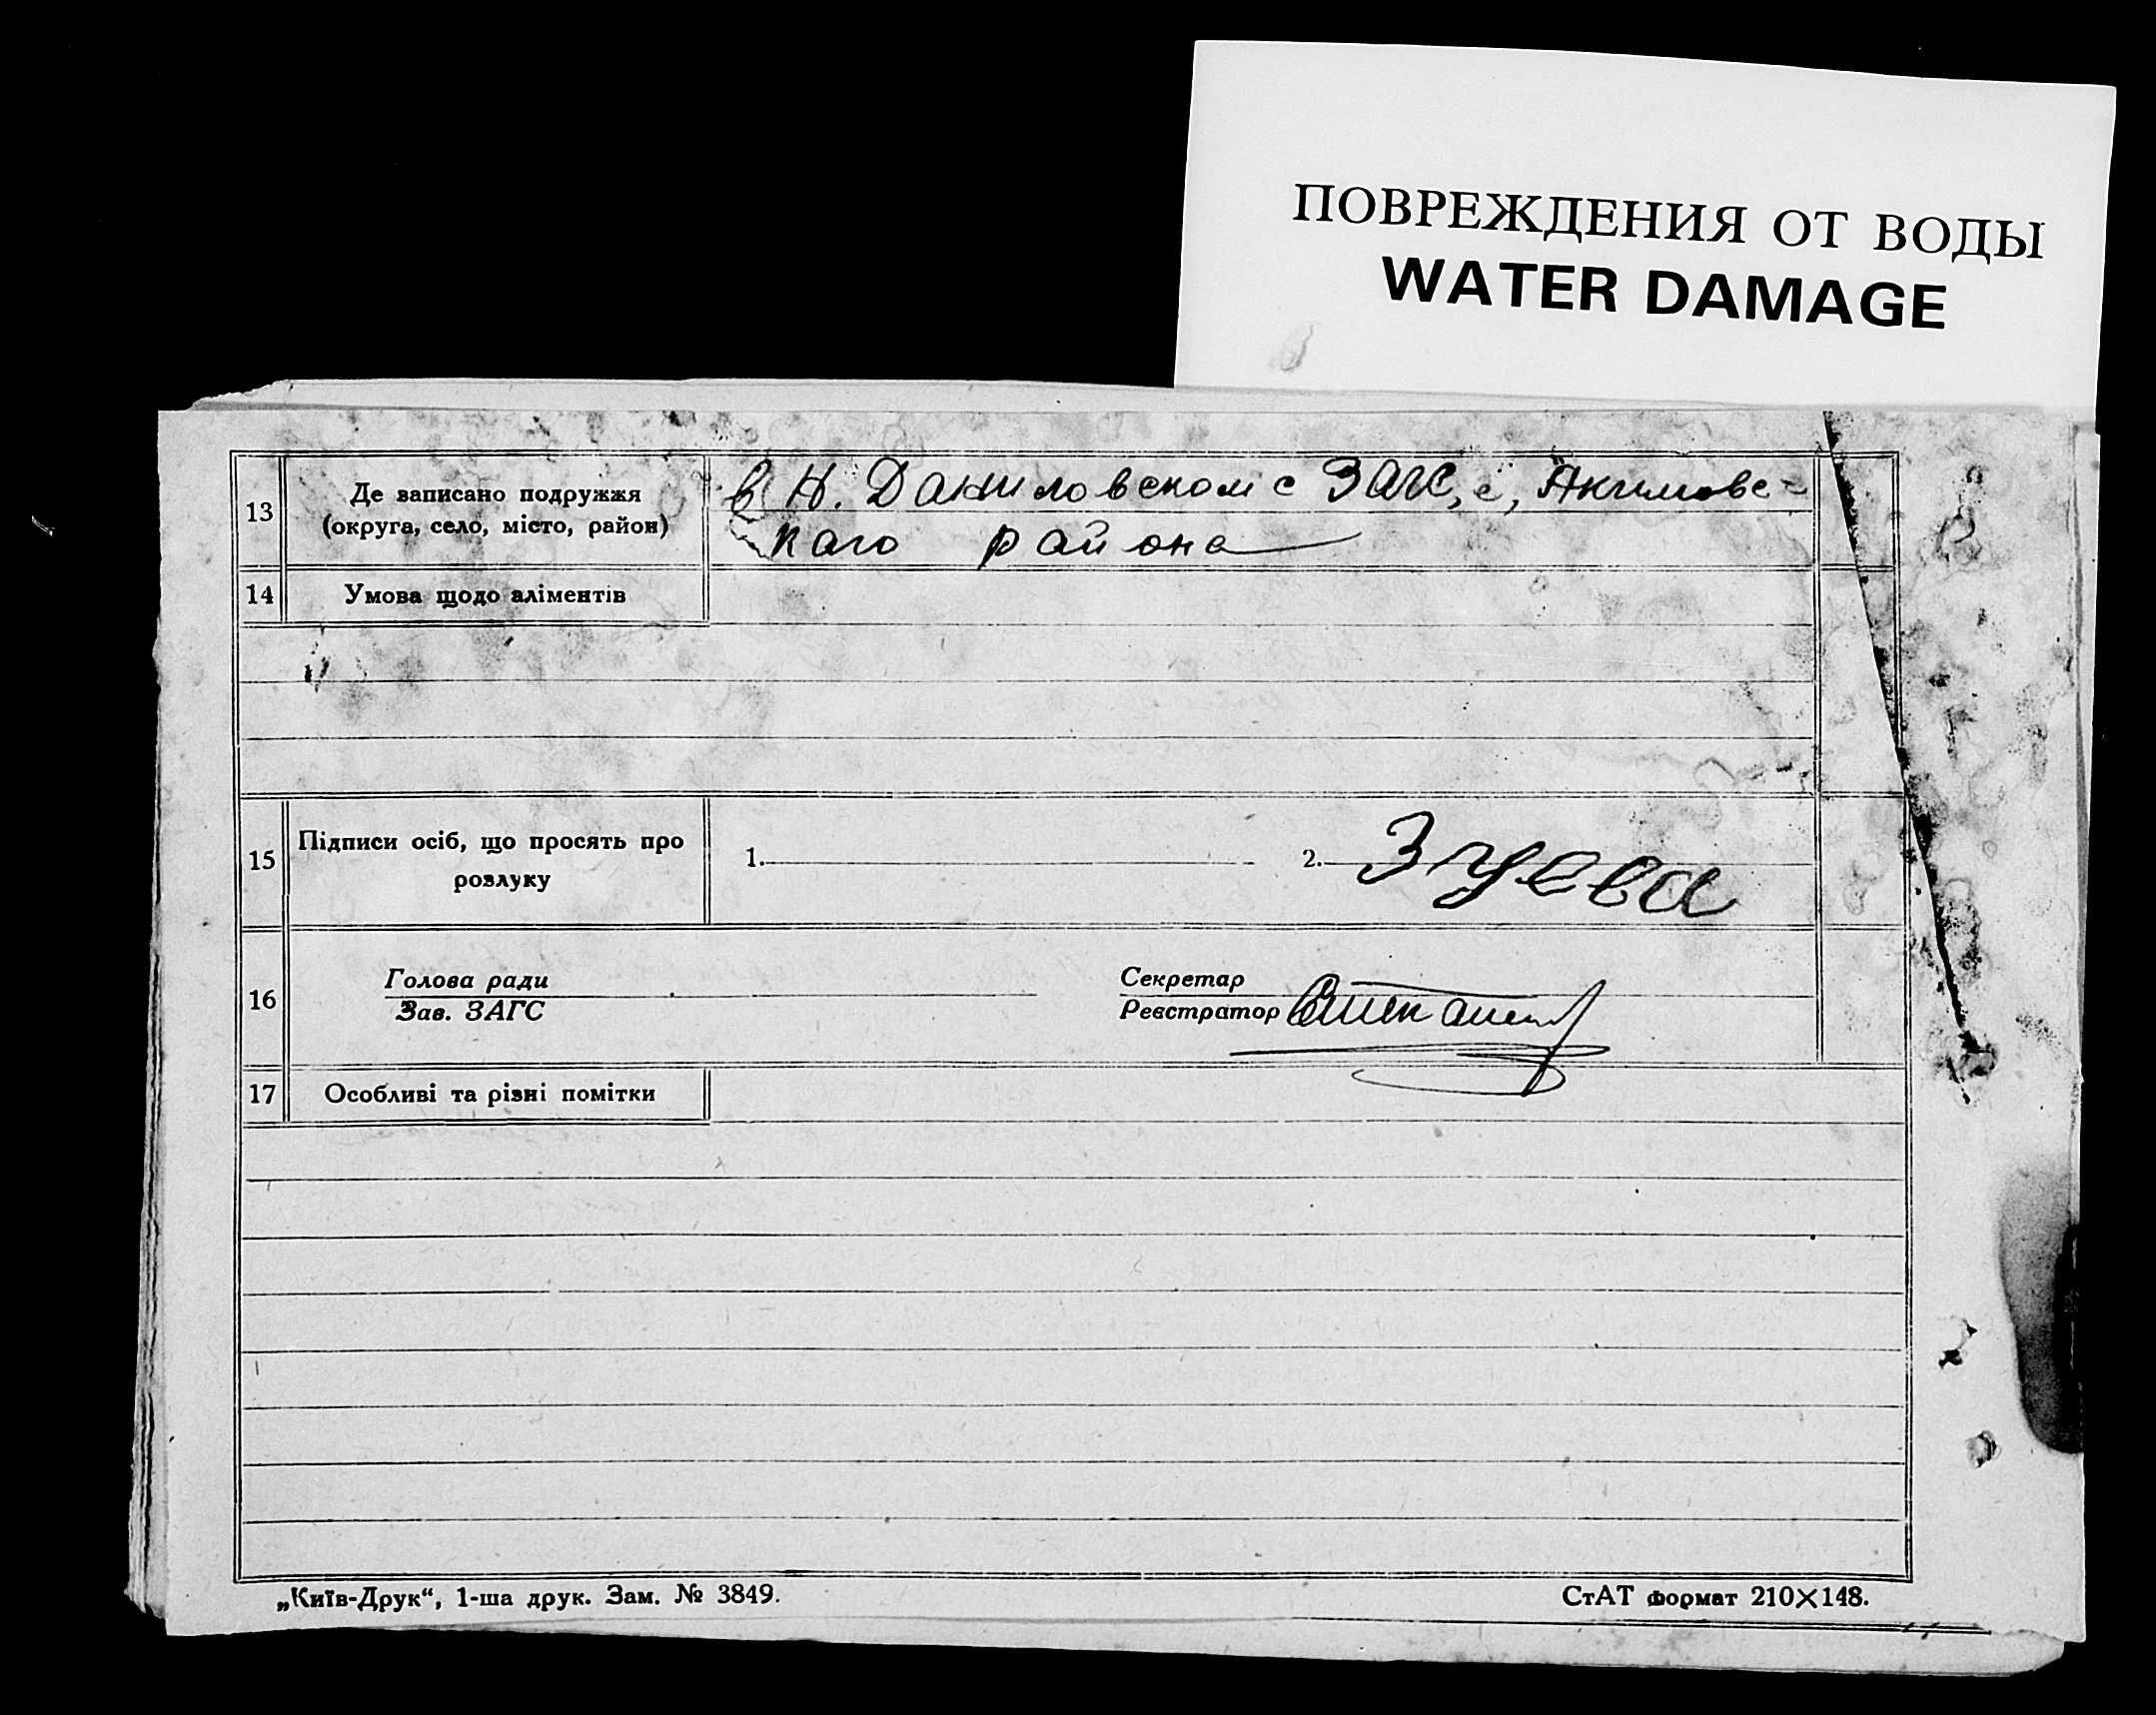 ПОВРЕЖДЕНИЯ ОТ ВОДЫ
WATER DAMAGE
13
Де записано подружжя
(округа, село, місто, район)
в Н. Даниловском с ЗАГС, с, Якимовс-
каго района
14
Умова щодо аліментів
15
Підписи осіб, що просять про
розлуку
1.
2. Зуева
16
Голова ради
Зав. ЗАГС
Секретар
Реєстратор
17
Особливі та різні помітки
„Київ-Друк“, 1-ша друк. Зам. № 3849.
СтАТ формат 210×148.